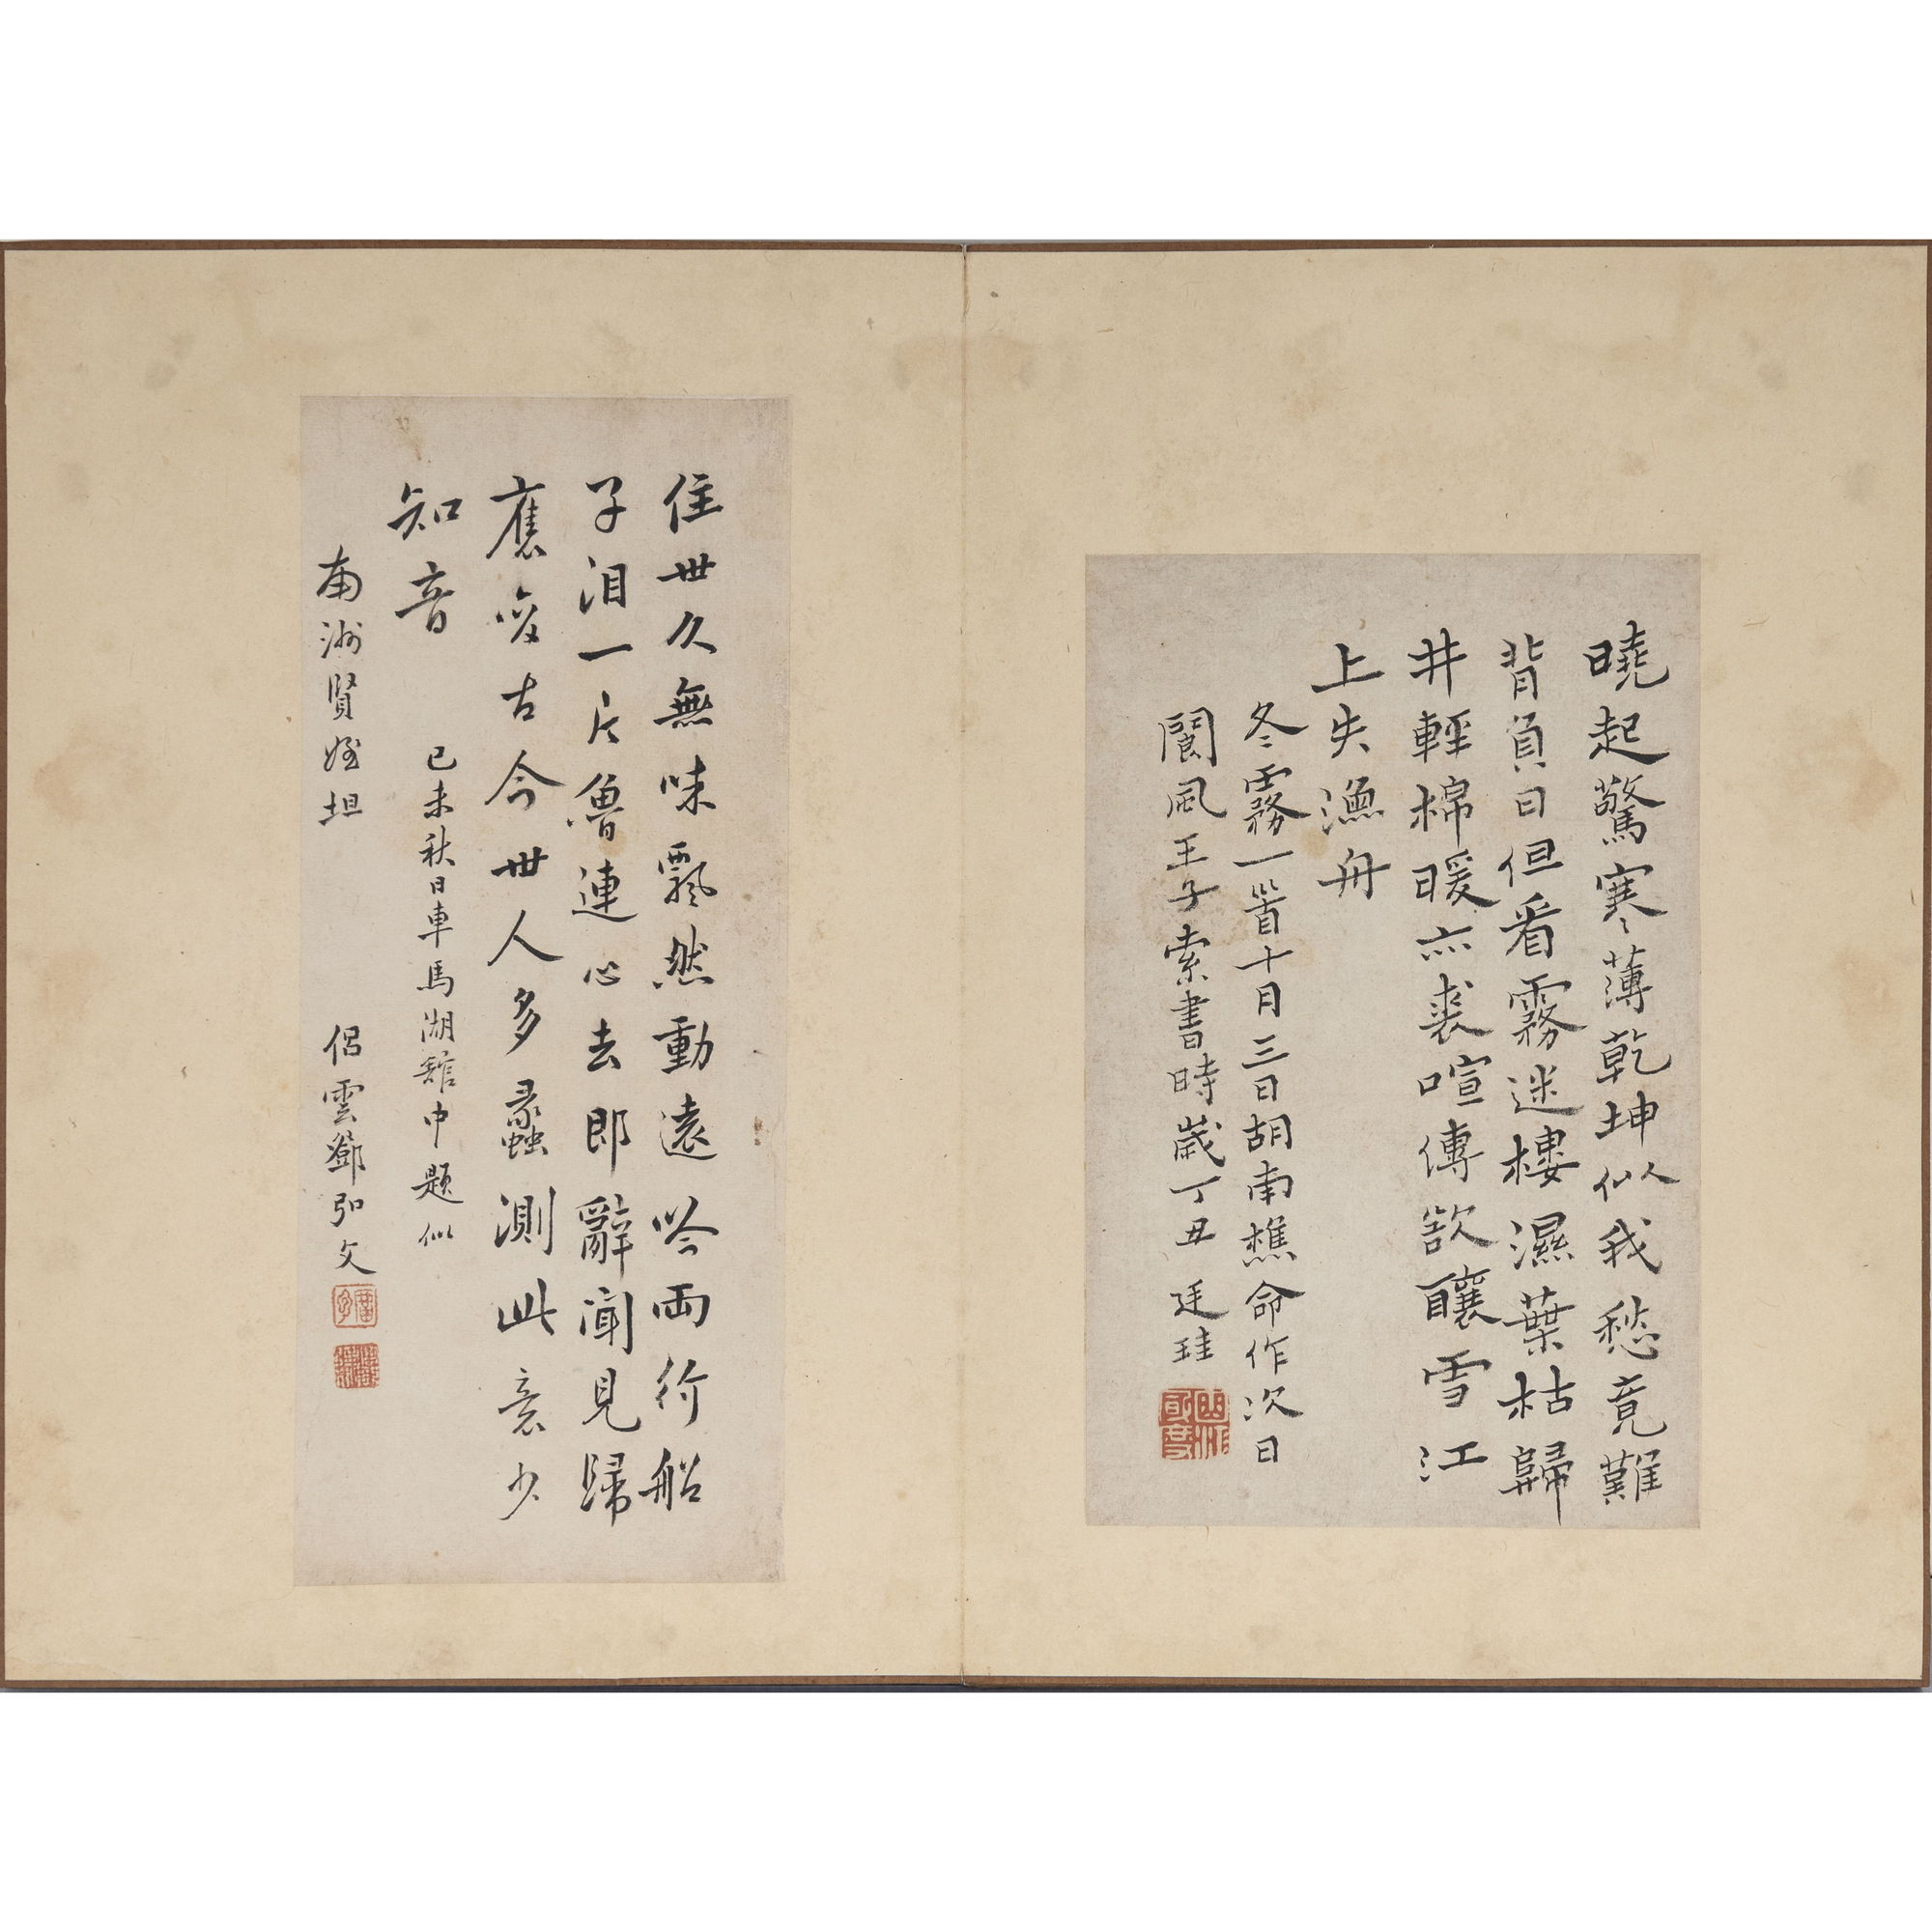 曉起驚寒薄乾坤似我愁竟難
背負日但看霧迷樓濕葉枯歸
井輕棉暖亦裘喧傳欲釀雪江
上失漁舟
冬霧一首十月三日胡南樵命作次日
閬風王子索書時歲丁丑 廷珪
住世久無味飄然動遠吟兩行船
子淚一片魯連心去即辭聞見歸
應變古今世人多蠡測此意少
知音
己未秋日車馬湖館中題似
南洲賢姪坦 侶雲鄧弘文